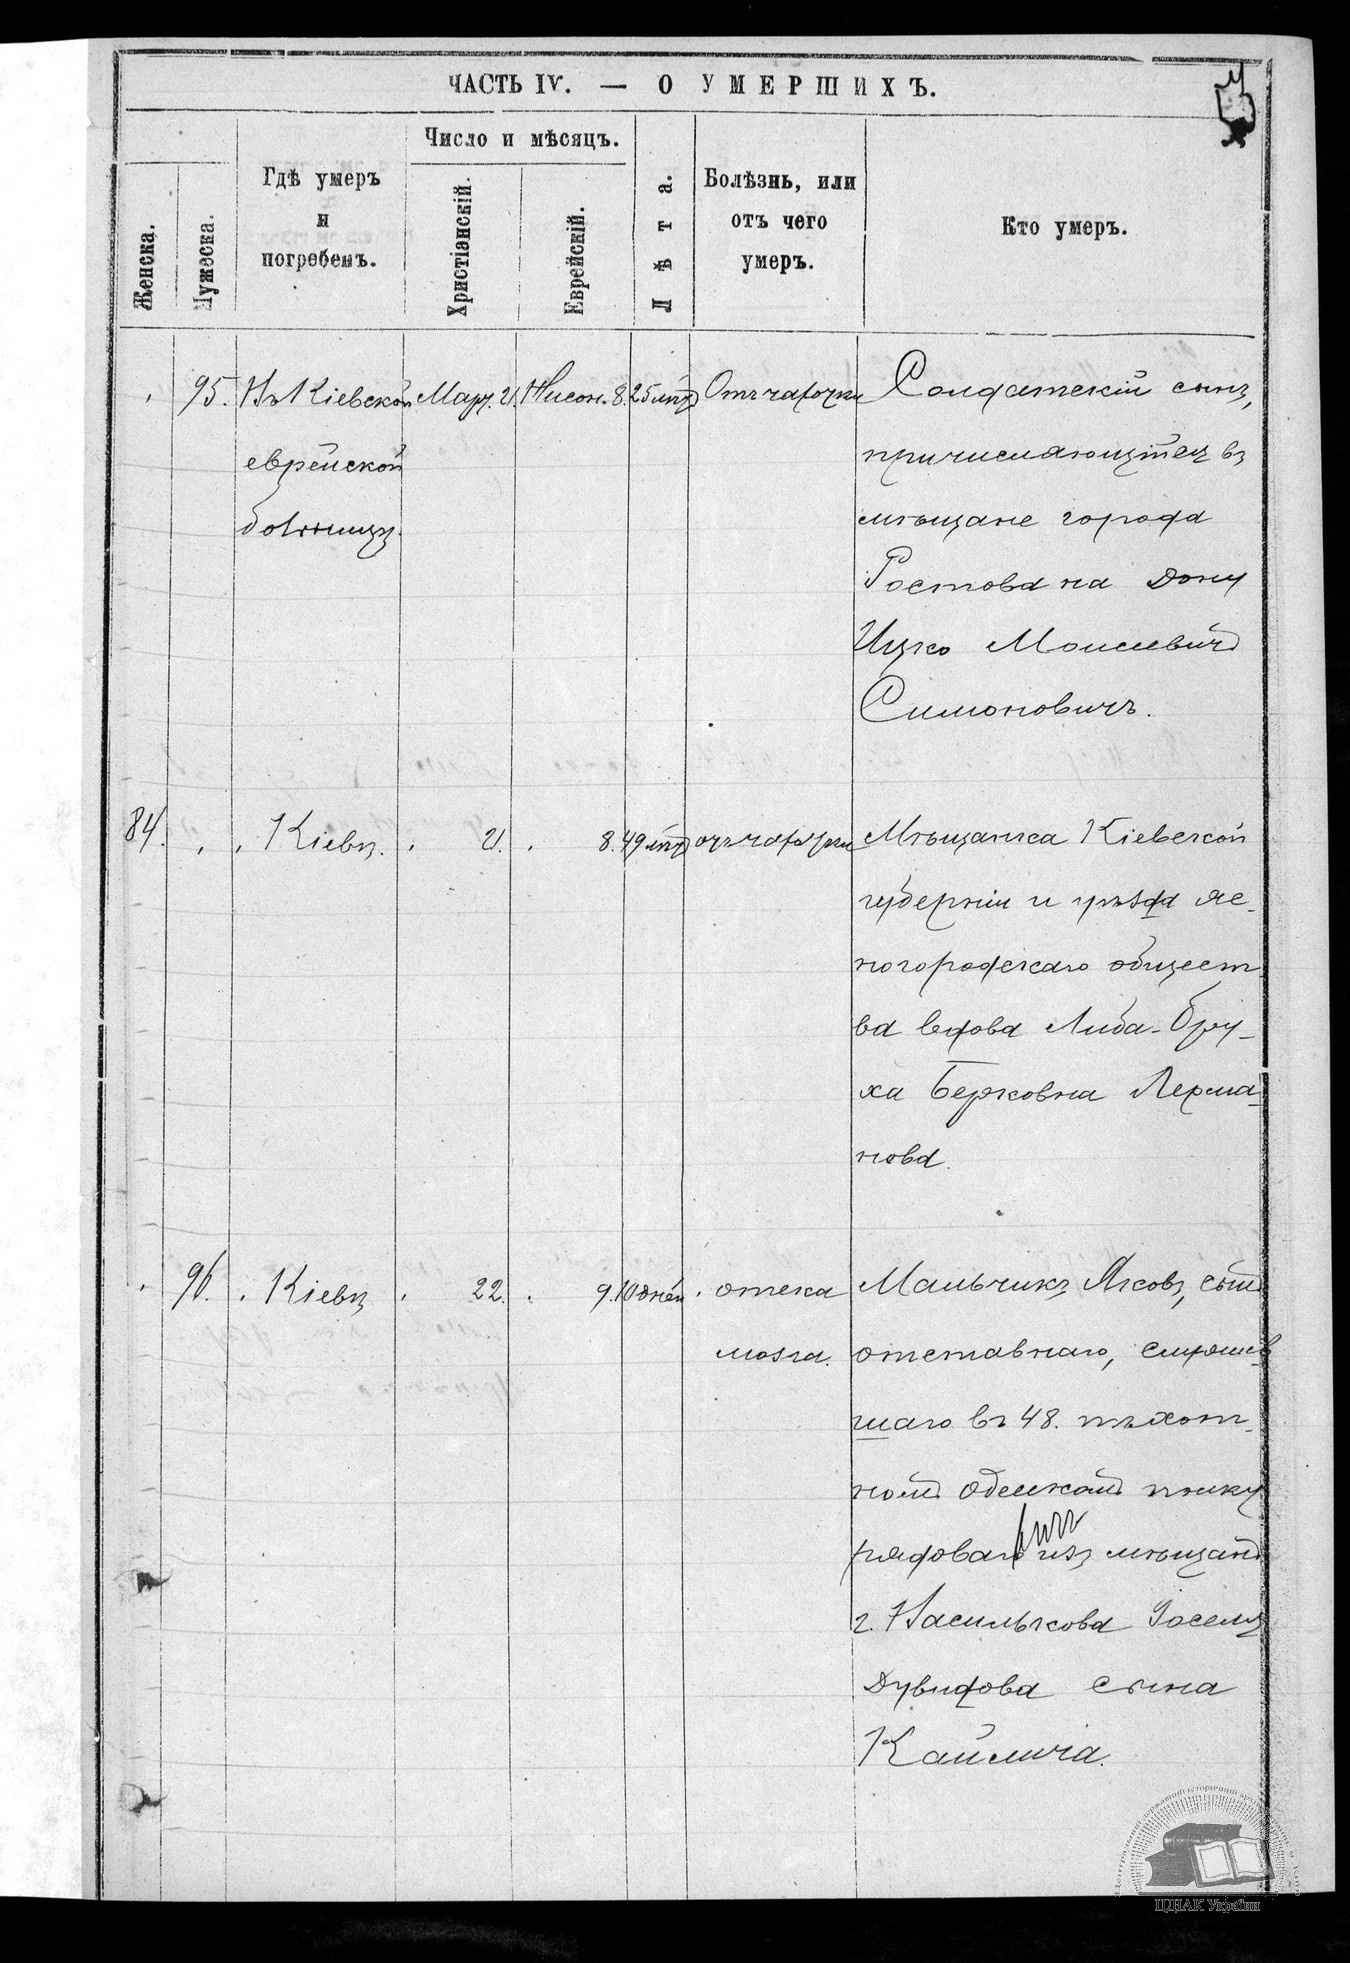 ЧАСТЬ IV. — О УМЕРШИХЪ.
Женска.
Мужеска.
Гдѣ умеръ
и
погребенъ.
Число и мѣсяцъ.
Христіанскій.
Еврейскій.
Лѣта.
Болѣзнь, или
отъ чего
умеръ.
Кто умеръ.
95. Въ Кіевской Март. 21. Нисон. 8. 25 лѣтъ Отъ чахотки Солдатскій сынъ,
еврейской причисляющійся въ
больницѣ. мѣщане города
Ростова на Дону
Ицко Моисеевичъ
Симоновичъ.
84. Кіевъ. 21. 8. 49 лѣтъ отъ чахотки Мѣщанка Кіевской
губерніи и уѣзда Яс-
ногородскаго общест-
ва вдова Либа-Бру-
ха Берковна Лерма-
нова.
96. Кіевъ 22. 9. 10 дней отека Мальчикъ Яковъ, сынъ
мозга. отставнаго, служив
шаго въ 48. пѣхот-
номъ Одесскомъ полку
рядоваго изъ мѣщанъ
г. Василькова Іоселя
Дувидова сына
Каймича.
ЦДІАК України